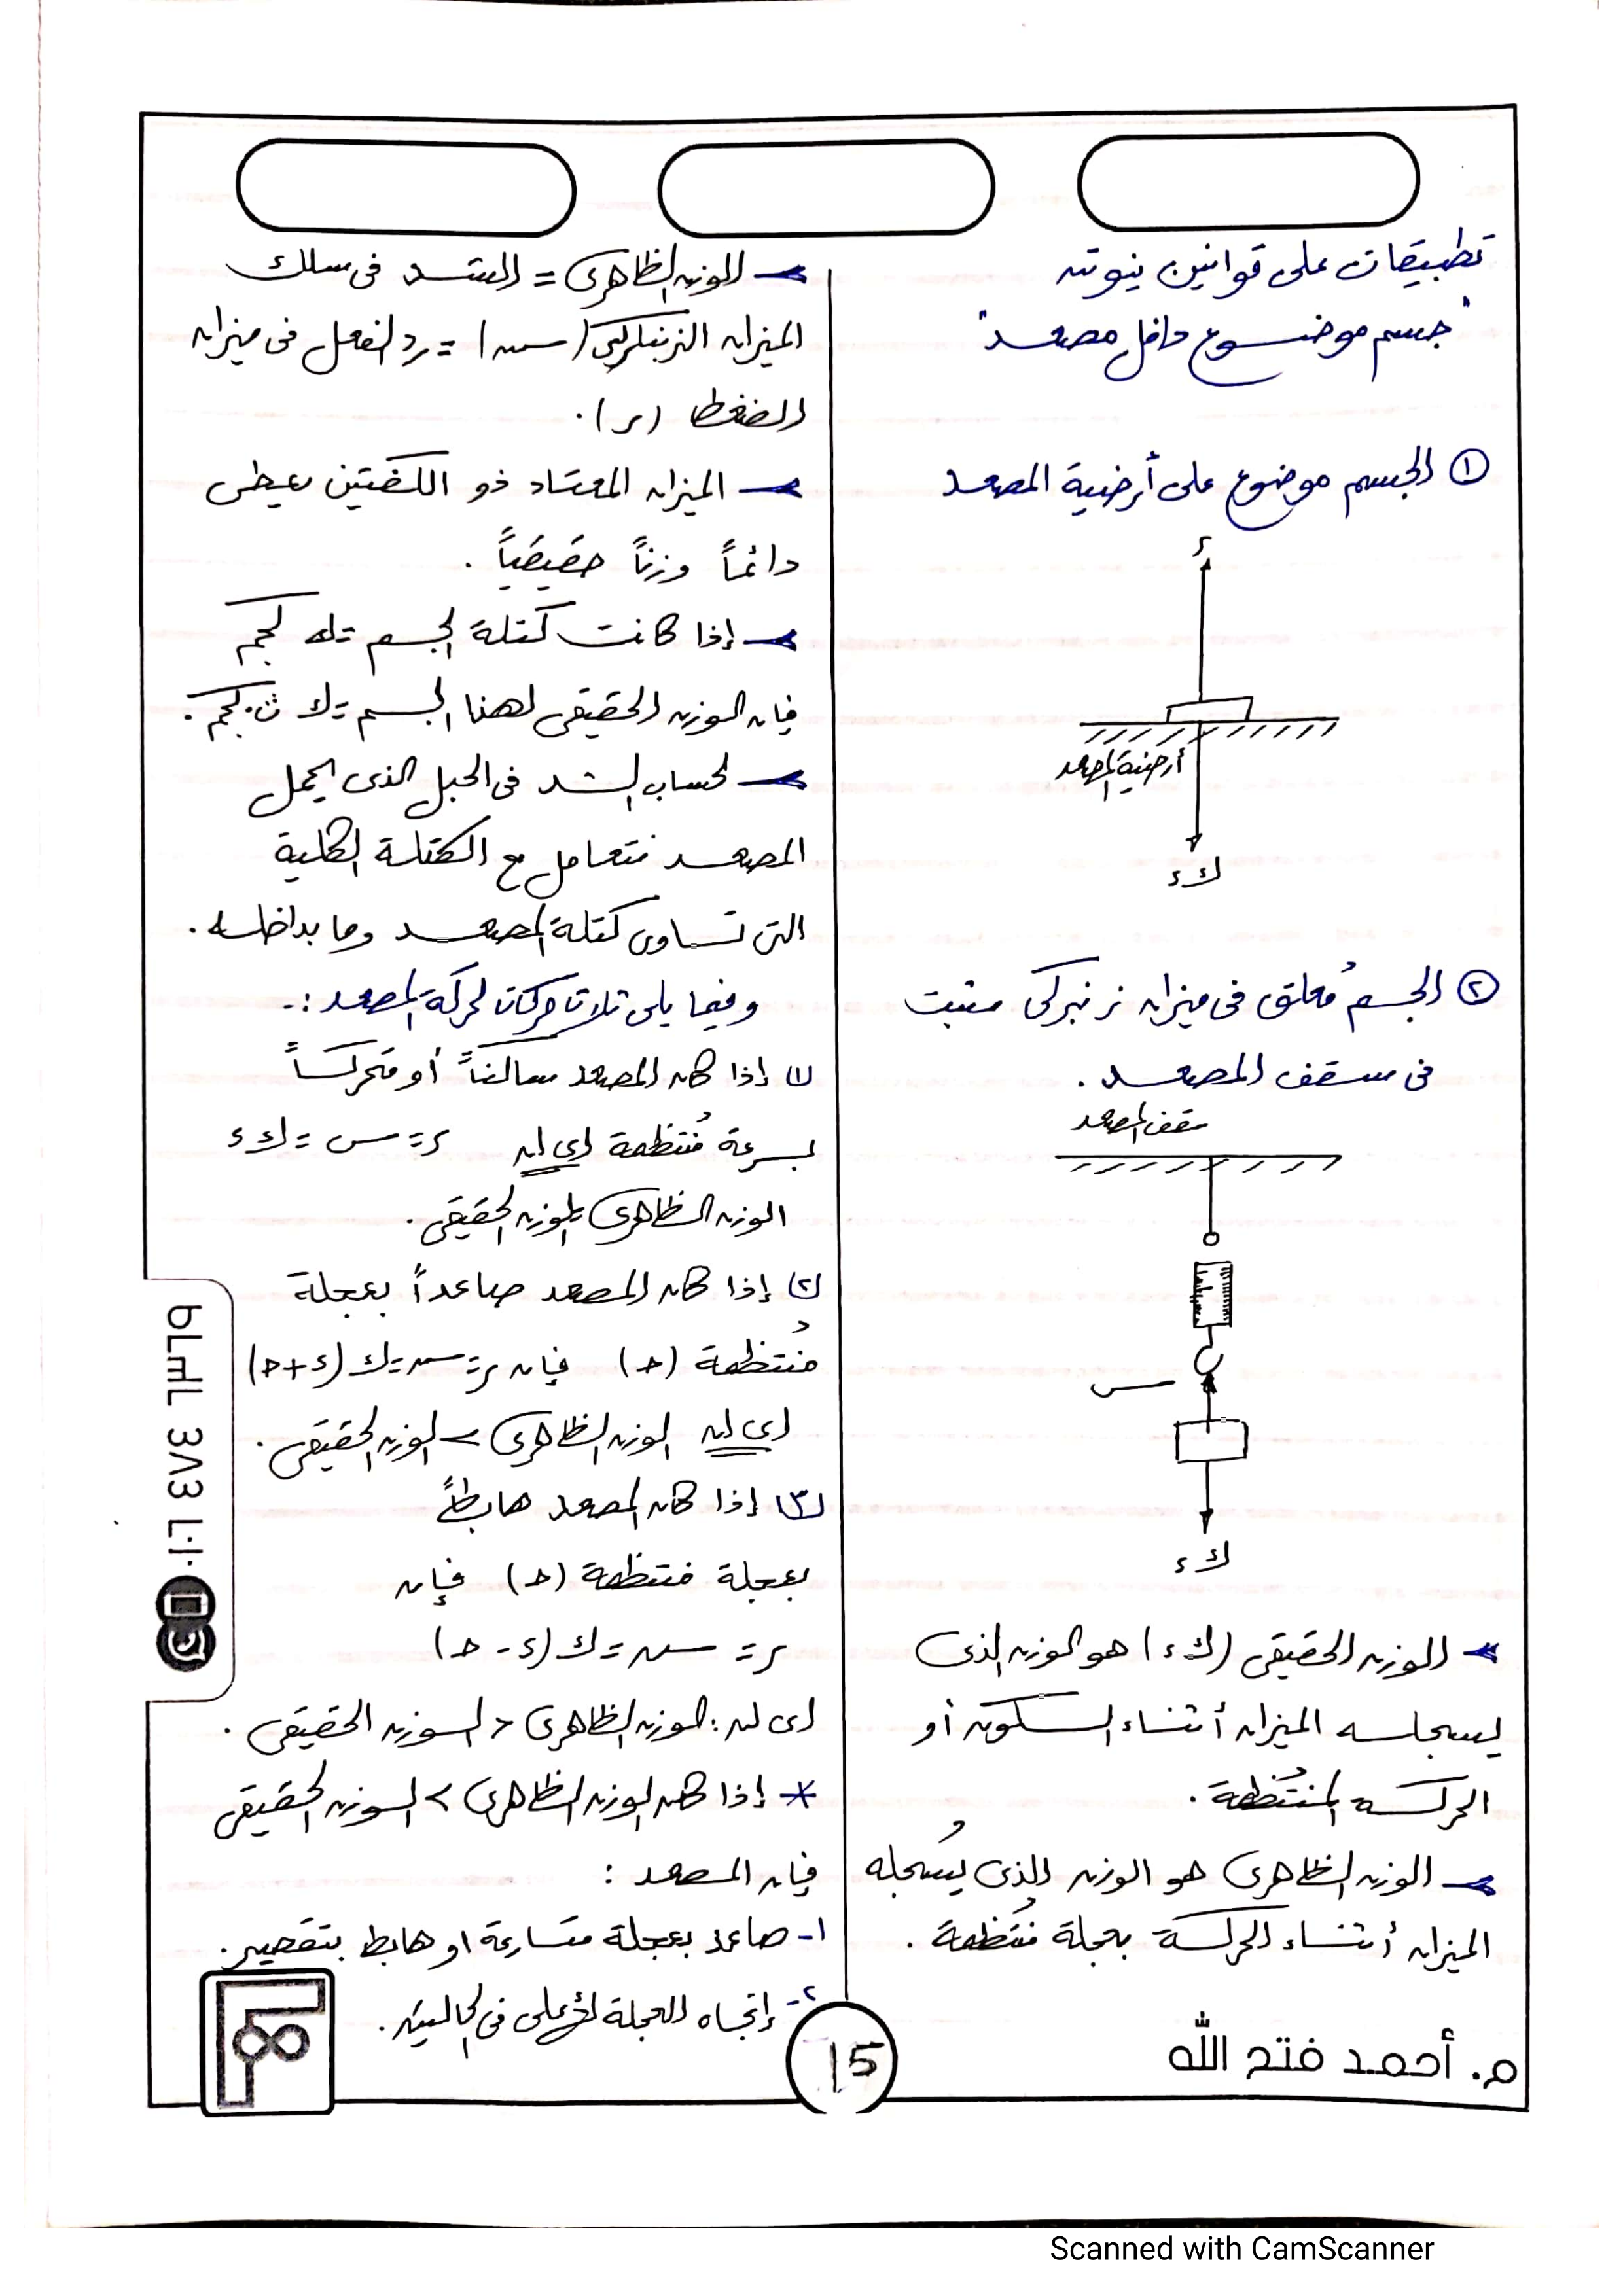 تطبيقات على قوانين نيوتن
"جسم موضوع داخل مصعد"
① الجسم موضوع على أرضية المصعد
ر
أرضية المصعد
ك ء
② الجسم مُعلق فى ميزان زنبركى مثبت
فى سقف المصعد .
سقف المصعد
ش
ك ء
الوزن الحقيقى (ك ء) هو الوزن الذى
يسجله الميزان أثناء السكون أو
الحركة المُنتظمة .
الوزن الظاهرى هو الوزن الذى يُسجله
الميزان أثناء الحركة بعجلة مُنتظمة .
الوزن الظاهرى = الشد فى سلك
الميزان الزنبركى (ش) = رد الفعل فى ميزان
الضغط (ر) .
الميزان المعتاد ذو الكفتين يعطى
دائماً وزناً حقيقياً .
إذا كانت كتلة الجسم = ك كجم
فإن الوزن الحقيقى لهذا الجسم = ك ث.كجم .
لحساب الشد فى الحبل الذى يحمل
المصعد نتعامل مع الكتلة الكلية
التى تساوى كتلة المصعد وما بداخله .
وفيما يلى ثلاث حركات لحركة المصعد :-
(١) إذا كان المصعد ساكناً أو متحركاً
بسرعة مُنتظمة أى أن ر = ش = ك ء
الوزن الظاهرى = الوزن الحقيقى .
(٢) إذا كان المصعد صاعداً بعجلة
مُنتظمة (حـ) فإن ر = ش = ك (ء + حـ)
أى أن الوزن الظاهرى > الوزن الحقيقى .
(٣) إذا كان المصعد هابطاً
بعجلة منتظمة (حـ) فإن
ر = ش = ك (ء - حـ)
أى أن : الوزن الظاهرى < الوزن الحقيقى .
* إذا كان الوزن الظاهرى > الوزن الحقيقى
فإن المصعد :
١- صاعد بعجلة متسارعة او هابط بتقصير .
٢- إتجاه العجلة لأعلى فى الحالتين .
م. أحمد فتح الله
15
Scanned with CamScanner